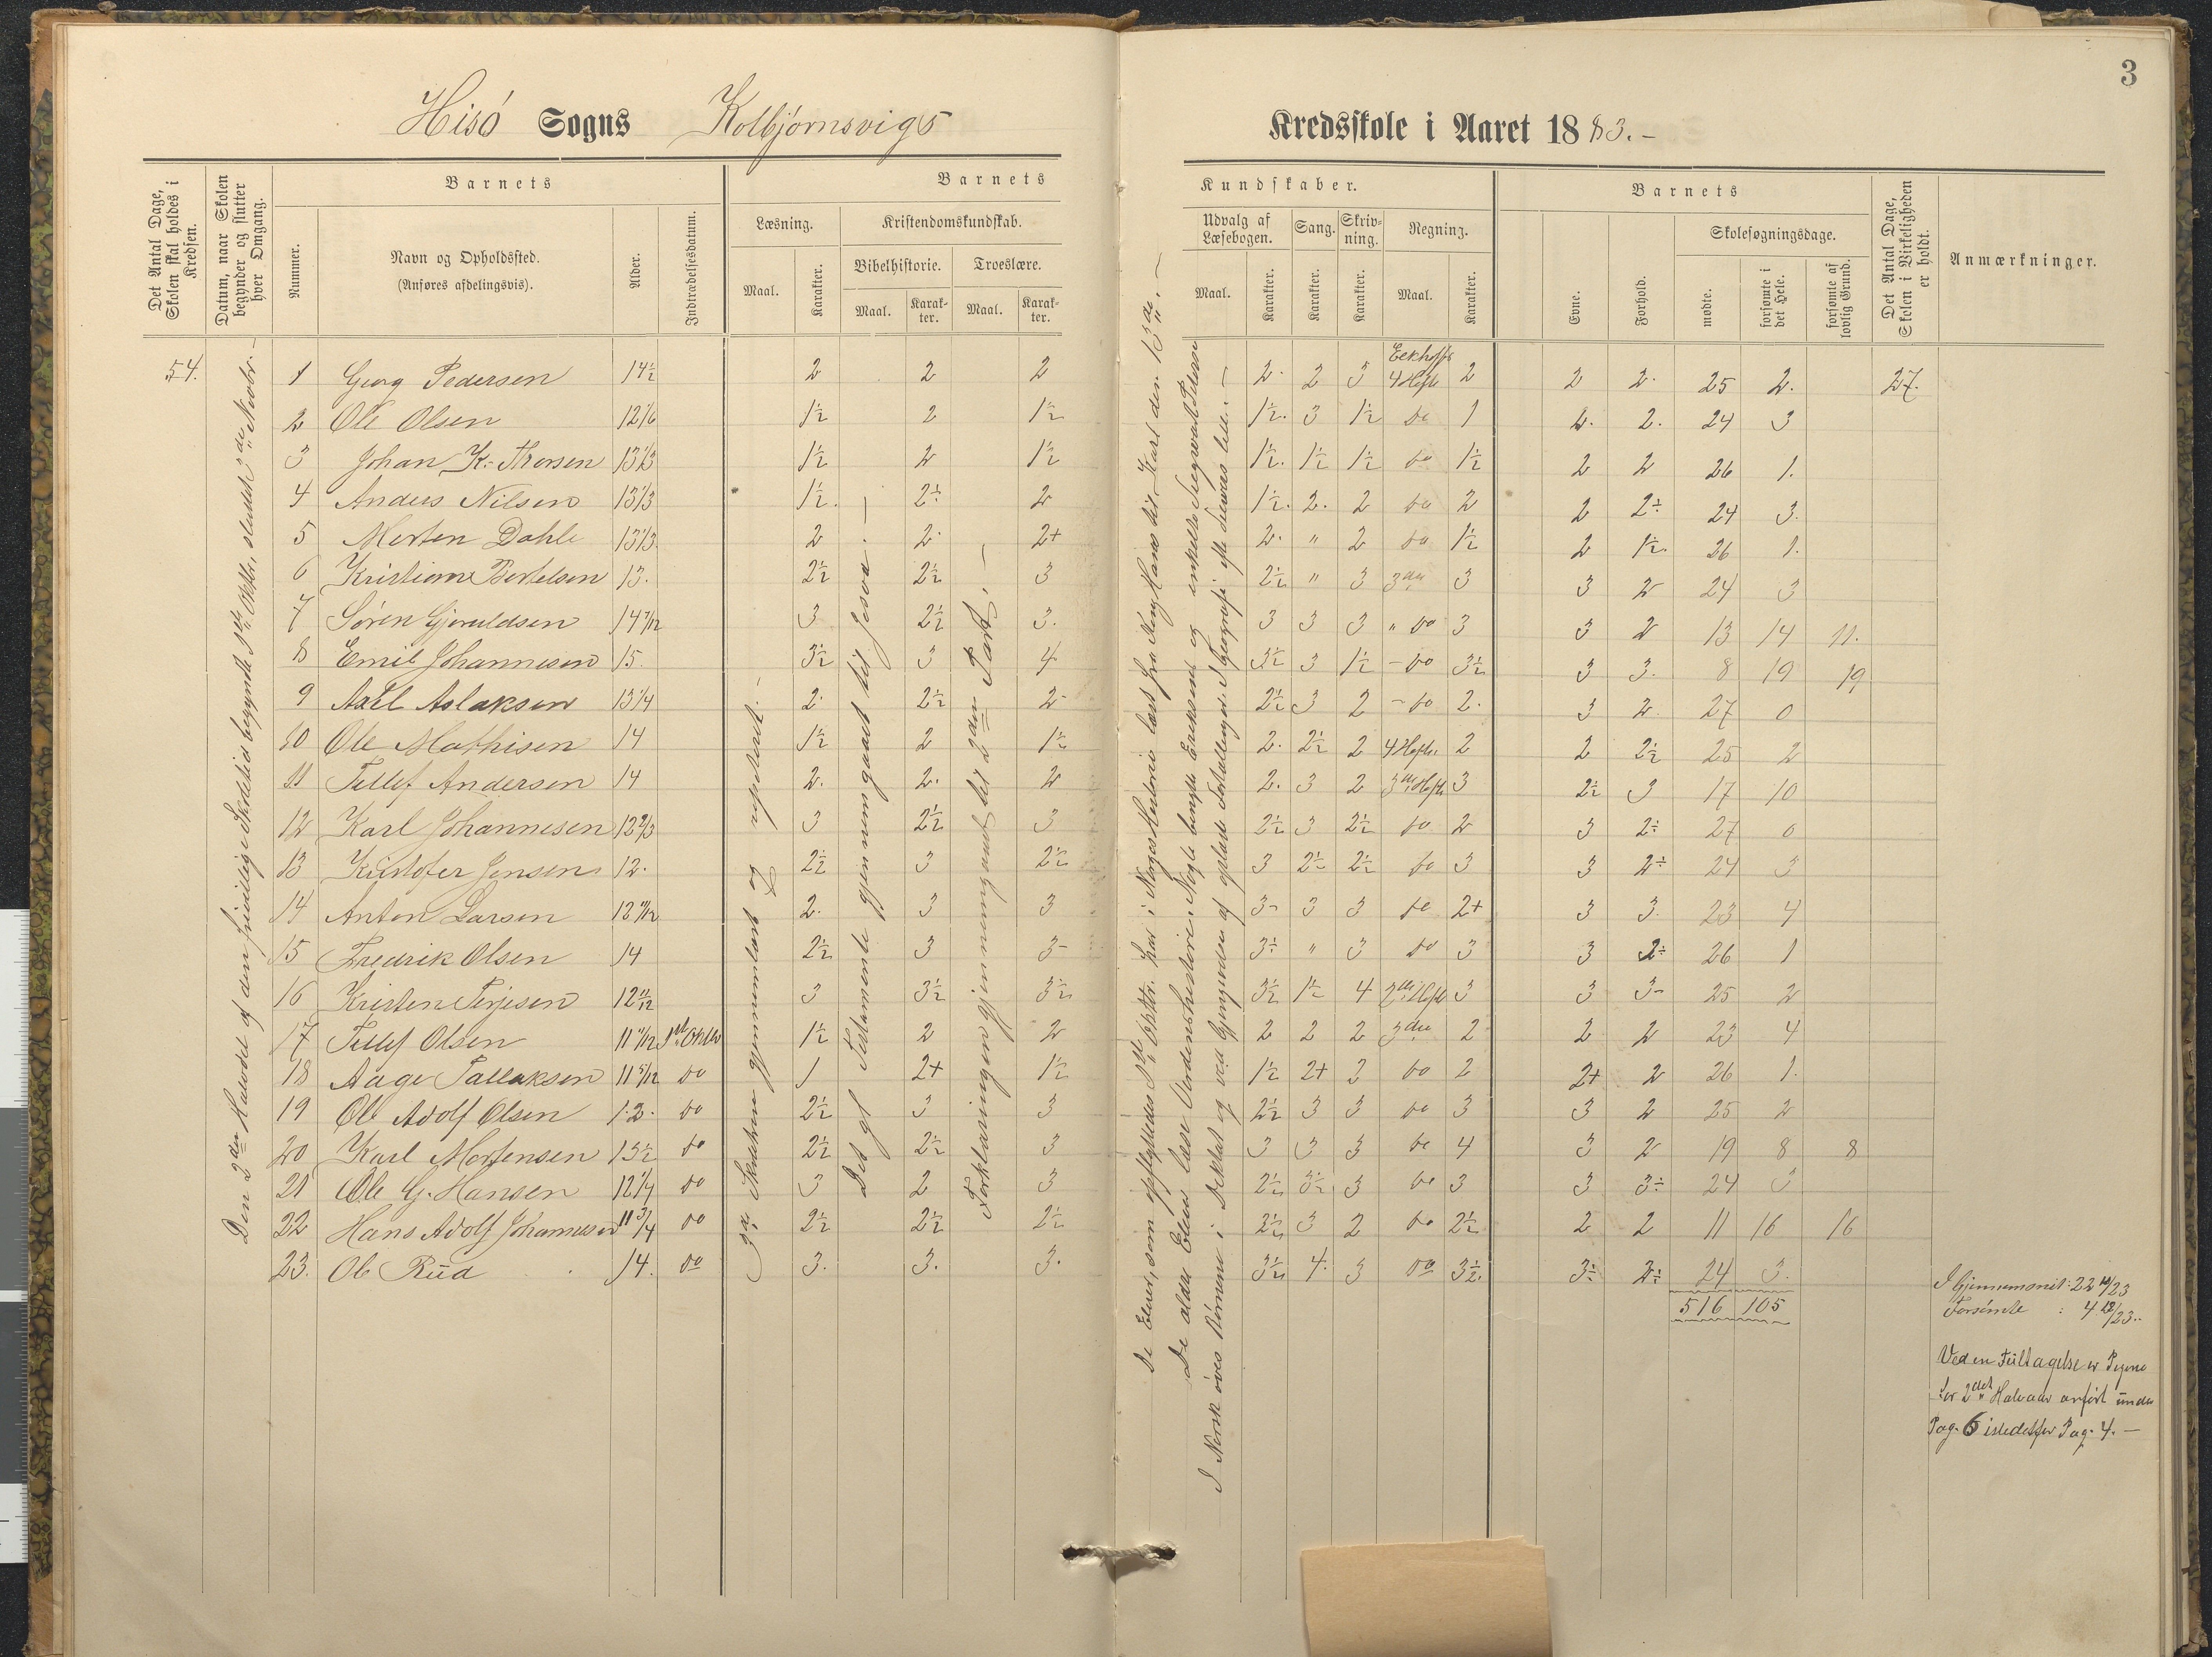 3
Hisö Sogns Kolbjørnsvigs Kredsskole i Aaret 1883.-
Det Antal Dage, Skolen skal holdes i Kredsen.
Datum, naar Skolen begynder og slutter hver Omgang.
Barnets
Nummer.
Navn og Opholdssted.
(Anføres afdelingsvis).
Alder.
Indtrædelsesdatum.
Barnets
Læsning.
Maal.
Karakter.
Kristendomskundskab.
Bibelhistorie.
Maal.
Karakter.
Troeslære.
Maal.
Karakter.
Kundskaber.
Udvalg af Læsebogen.
Maal.
Karakter.
Sang.
Karakter.
Skrivning.
Karakter.
Regning.
Maal.
Karakter.
Barnets
Evne.
Forhold.
Skolesøgningsdage.
mødte.
forsømte i det Hele.
forsømte af lovlig Grund.
Det Antal Dage, Skolen i Virkeligheden er holdt.
Anmærkninger.
54. 1 Georg Pedersen 14½ 2 2 2 2. 2 3 Eekhoffs 4 Hefte 2 2 2. 25 2. 27.
2 Ole Olsen 12 1/6 1½ 2 1½ 1½. 3 1½ do 1 2. 2. 24 3
3 Johan K. Thorsen 13 1/3 1½ 2 1½ 1½. 1½ 1½ do 1½ 2 2 26 1.
4 Anders Nilsen 13 1/3 1½. 2÷ 2 1½. 2. 2 do 2 2 2÷ 24 3.
5 Morten Dahle 13 1/3 2 2. 2+ 2. " 2 do 1½ 2 1½. 26 1.
6 Kristian Bertelsen 13. 2½ 2½ 3 2½ " 3 3die 3 3 2 24 3
7 Søren Gjeruldsen 14 7/12 3 2½ 3. 3 3 3 " do 3 3 2 13 14 11.
8 Emil Johannesen 15. 3½ 3 4 3½ 3 1½ - do 3½ 3 3. 8 19 19
9 Axel Aslaksen 13 1/4 2. 2½ 2- 2½ 3 2 - do 2. 3 2. 27 0
10 Ole Mathisen 14 1½ 2 1½ 2. 2½ 2 4 Hefte 2 2 2½ 25 2
11 Tellef Andersen 14 2. 2. 2 2. 3 2 3die Hefte 3 2½ 3 17 10
12 Karl Johannesen 12 2/3 3 2½ 3 2½ 3 2½ do 2 3 2÷ 27 0
13 Kristofer Jensen 12. 2½ 3 2½ 3 2½ 2½ do 3 3 2÷ 24 3
14 Anton Larsen 12 11/12 2. 3 3 3- 3 3 do 2+ 3 3. 23 4
15 Fredrik Olsen 14 2½ 3 3- 3÷ " 3 do 3 3 2÷ 26 1
16 Kristen Terjesen 12 11/12 3 3½ 3½ 3½ 1½ 4 2det Hefte 3 3 3- 25 2
17 Tellef Olsen 11 11/12 1ste Oktbr 1½ 2 2 2 2 2 3die 2 2 2 23 4
18 Aage Tallaksen 11 5/12 do 1 2+ 1½ 1½ 2+ 2 do 2 2+ 2 26 1.
19 Ole Adolf Olsen 12. do 2½ 3 3 2½ 3 3 do 3 3 2 25 2
20 Karl Mortensen 13½ do 2½ 2½ 3 3 3 3 do 4 3 2 19 8 8
21 Ole G. Hansen 12 1/4 do 3 2 3 2½ 3½ 3 do 3 3 3÷ 24 3
22 Hans Adolf Johannesen 11 3/4 do 2½ 2½ 2½ 2½ 3 2 do 2½ 2 2 11 16 16
23. Ole Rüd 14. do 3. 3. 3. 3½ 4. 3 do 3½. 3÷ 2÷ 24 3.
516 105
Den 2den Halvdel af den frivillige Skoletid begyndte 1ste Oktbr, sluttet 2den Novbr.-
3die Skoletrin gjennemlæst og repeteret.-
Det gl Testamente gjennemgaaet til Josva.-
Forklaringen gjennemgaaet til 2den Part.-
De Elever, som opflyttedes 1ste Oktbr. har i Norges Historie læst fra Kong Hans til Karl den 13de.-
De ældre Elever læse Verdenshistorie. Nogle benytte Eriksens og enkelte Siegwart Petersens
I Norsk øves Børnene i Diktat og ved Gjengivelse af oplæste Fortællinger. I Geografi
I Gjennemsnit: 22 10/23
Forsømte : 4 13/23..
Ved en Feiltagelse er Pigerne
for 2det Halvaar anført under
Pag. 6 istedetfor Pag. 4. -